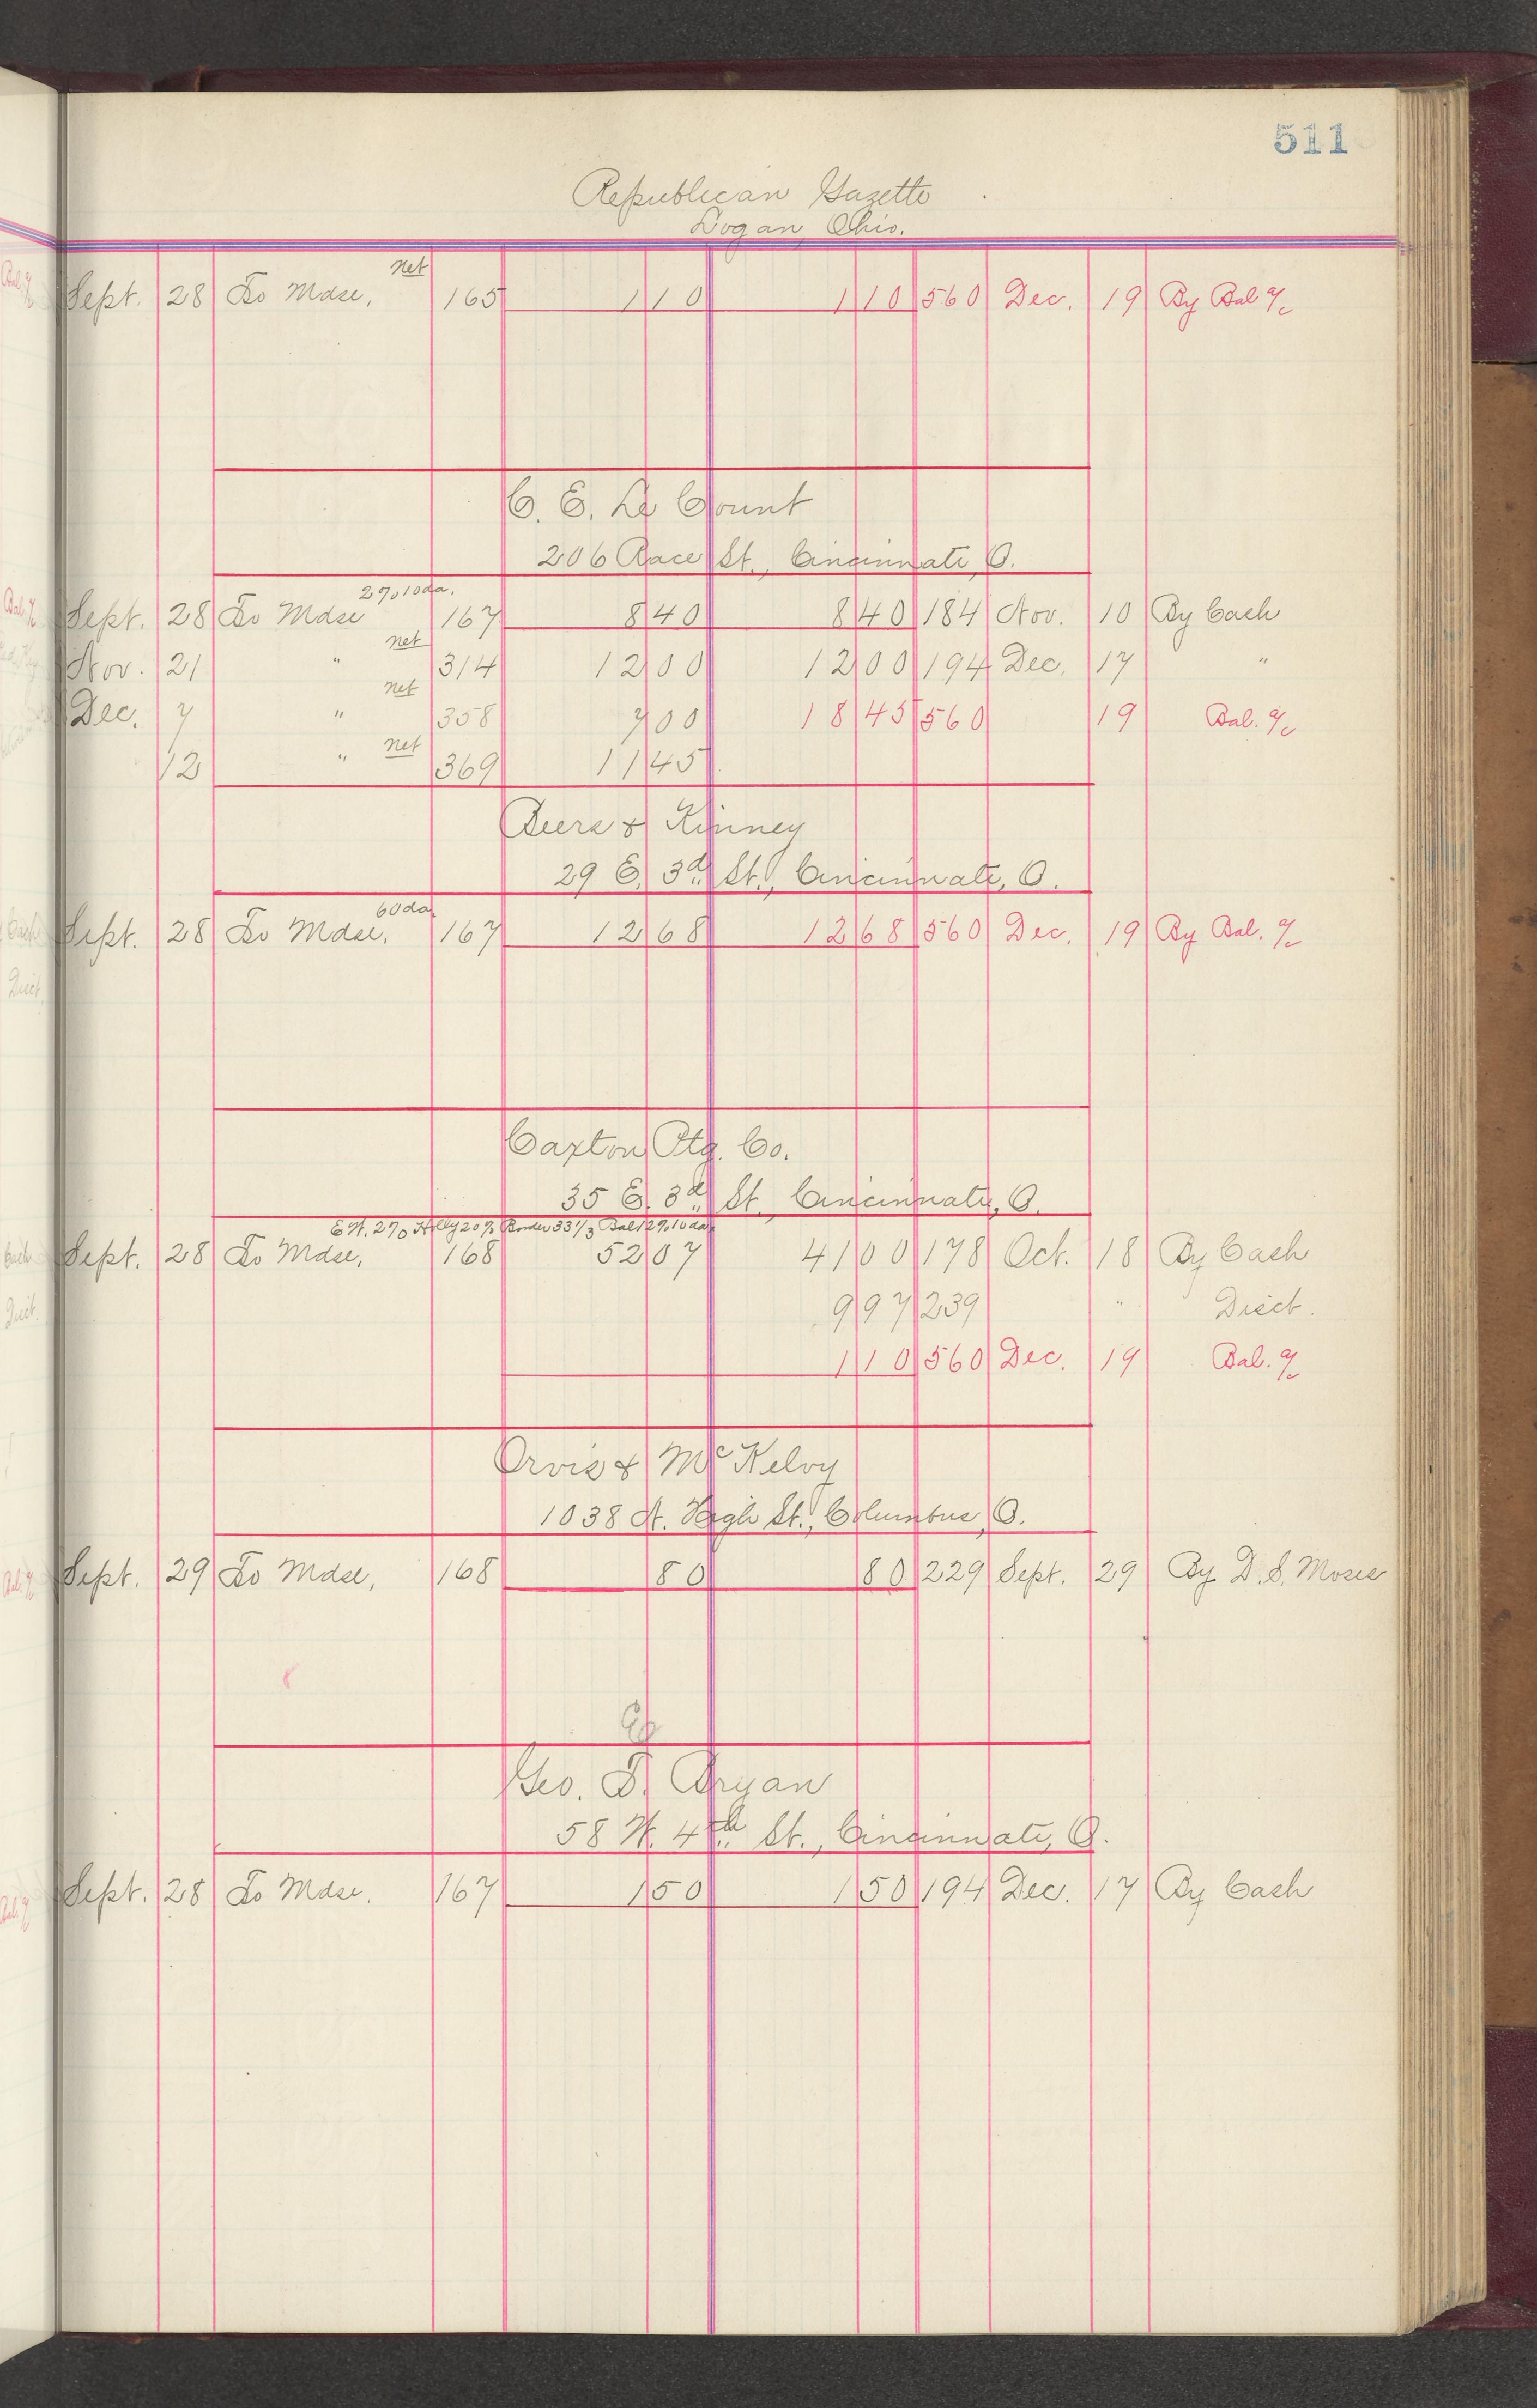 511
Republican Gazette
Logan, Ohio.
net
Sept. 28 To Mdse. 165 1 10 1 10 560 Dec. 19 By Bal a/c
C. E. Le Count
206 Race St., Cincinnati, O.
2% 10 da.
Sept. 28 To Mdse 167 8 40 8 40 184 Nov. 10 By Cash
net
Nov. 21 " 314 12 00 12 00 194 Dec. 17 "
net
Dec. 7 " 358 7 00 18 45 560 19 Bal. a/c
net
12 " 369 11 45
Beers & Kinney
29 E. 3d St., Cincinnati, O.
60 da.
Sept. 28 To Mdse. 167 12 68 12 68 560 Dec. 19 By Bal. a/c
Caxton Ptg. Co.
35 E. 3d St., Cincinnati, O.
2% Holly 20% Border 33 1/3 Bal 2% 10 da.
Sept. 28 To Mdse. 168 52 07 41 00 178 Oct. 18 By Cash
9 97 239 " Disct.
1 10 560 Dec. 19 Bal. a/c
Orvis & McKelvy
1038 N. High St., Columbus, O.
Sept. 29 To Mdse. 168 80 80 229 Sept. 29 By D. S. Moses
E
Geo. T. Bryan
58 W. 4th St., Cincinnati, O.
Sept. 28 To Mdse. 167 1 50 1 50 194 Dec. 17 By Cash